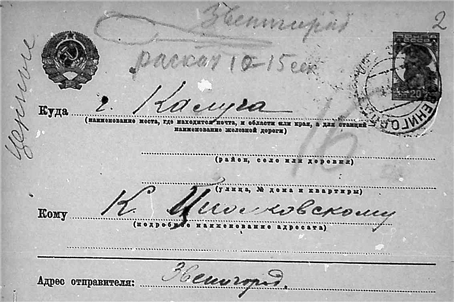 Звенигород 2
раскат 10-15 сек
ценные
Куда г. Калуга
(наименование места, где находится почта, и области или края, а для станций
наименование железной дороги)
16
(район, село или деревня)
(улица, № дома и квартиры)
Кому К. Циолковскому
(подробное наименование адресата)
Адрес отправителя: Звенигород.